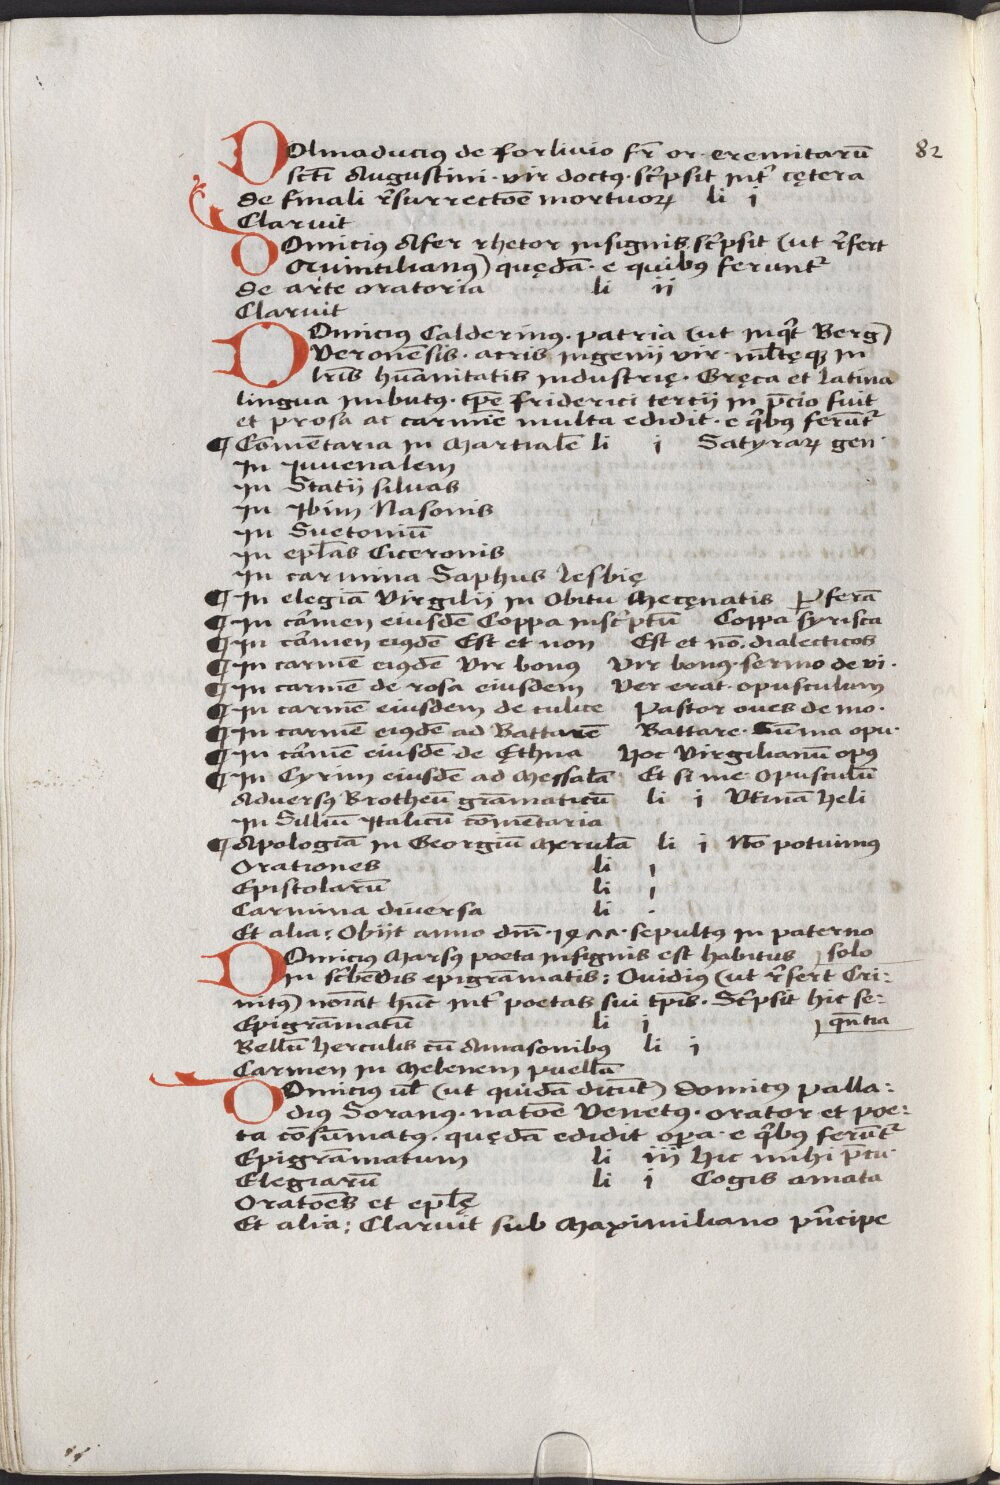 82
DOlmaducius de Forlivio fr̄ or. eremitarū
sctī Augustini. vir doctus. sc̄psit int̄ cętera
de finali r̄surrectōe mortuoꝝ li i
Claruit
DOmicius Afer rhetor insignis sc̄psit (ut r̄fert
Quintilianꝰ) quędā. e quibꝰ ferunt̄
de arte oratoria li ii
Claruit
DOmicius Calderinꝰ. patria (ut inqt̄ Berḡ)
Veronēsis. acris ingenij vir. ml̄tęqꝫ in
lr̄is hūanitatis industrię. Gręca et Latina
lingua imbutꝰ. tp̄e Friderici tercij in p̄cio fuit
et prosa ac carmīe multa edidit. e qb̄us ferūt̄
¶ Cōmētaria in Martialē li i Satyraꝝ gen.
In Juvenalem
In Statij silvas
In Ibim Nasonis
In Suetoniū
In epl̄as Ciceronis
In carmina Saphus Lesbię
¶ In elegiā Virgilij in Obitu Mecęnatis ꝑferā
¶ In carmen eiusdē Coppa insc̄ptū Coppa syrisca
¶ In carmen eiꝰdē Est et non Est et nō. dialecticos
¶ In carmē eiꝰdē Vir bonꝰ Vir bonꝰ. sermo de vi.
¶ In carmē de rosa eiusdem Ver erat. opusculum
¶ In carmē eiusdem de culice Pastor oves de mo.
¶ In carmē eiꝰdē ad Battarē Battare. Sūma opu.
¶ In carmē eiusdē de Ęthna Hoc Virgilianū opꝰ
¶ In Cyrim eiusdē ad Messalā Et si me. Opusculū
Adversꝰ Brotheū grāmaticū li i Vtinā heli
In Silliū Italicū cōmētaria
¶ Apologiā in Georgiū Merulā li i Nō potuimꝰ
Orationes li i
Epistolarū li i
Carmina diversa li .
Et alia: Obijt anno dnī. 1477. sepultꝰ in paterno
DOmicius Marsꝰ poeta insignis est habitus solo
in sc̄bēdis epigrāmatis: Ovidius (ut r̄fert Cri-
nitꝰ) noīat hūc int̄ poetas sui tp̄is. Sc̄psit hic se-
Epigrāmatū li i qn̄tia
Bellū Herculis cū Amasonibꝰ li i
Carmen in Mebenem puellā
DOmicius ul̄ (ut quidā dicūt) Domitꝰ Palla-
dius Soranꝰ. natōe Venetꝰ. orator et poe-
ta cōsūmatꝰ. quędā edidit op̄a. e qb̄us ferūt̄
Epigrāmatum li iii Hic mihi p̄cu.
Elegiarū li i Cogis amata
Oratōes et epl̄ę
Et alia: Claruit sub Maximiliano pn̄cipe